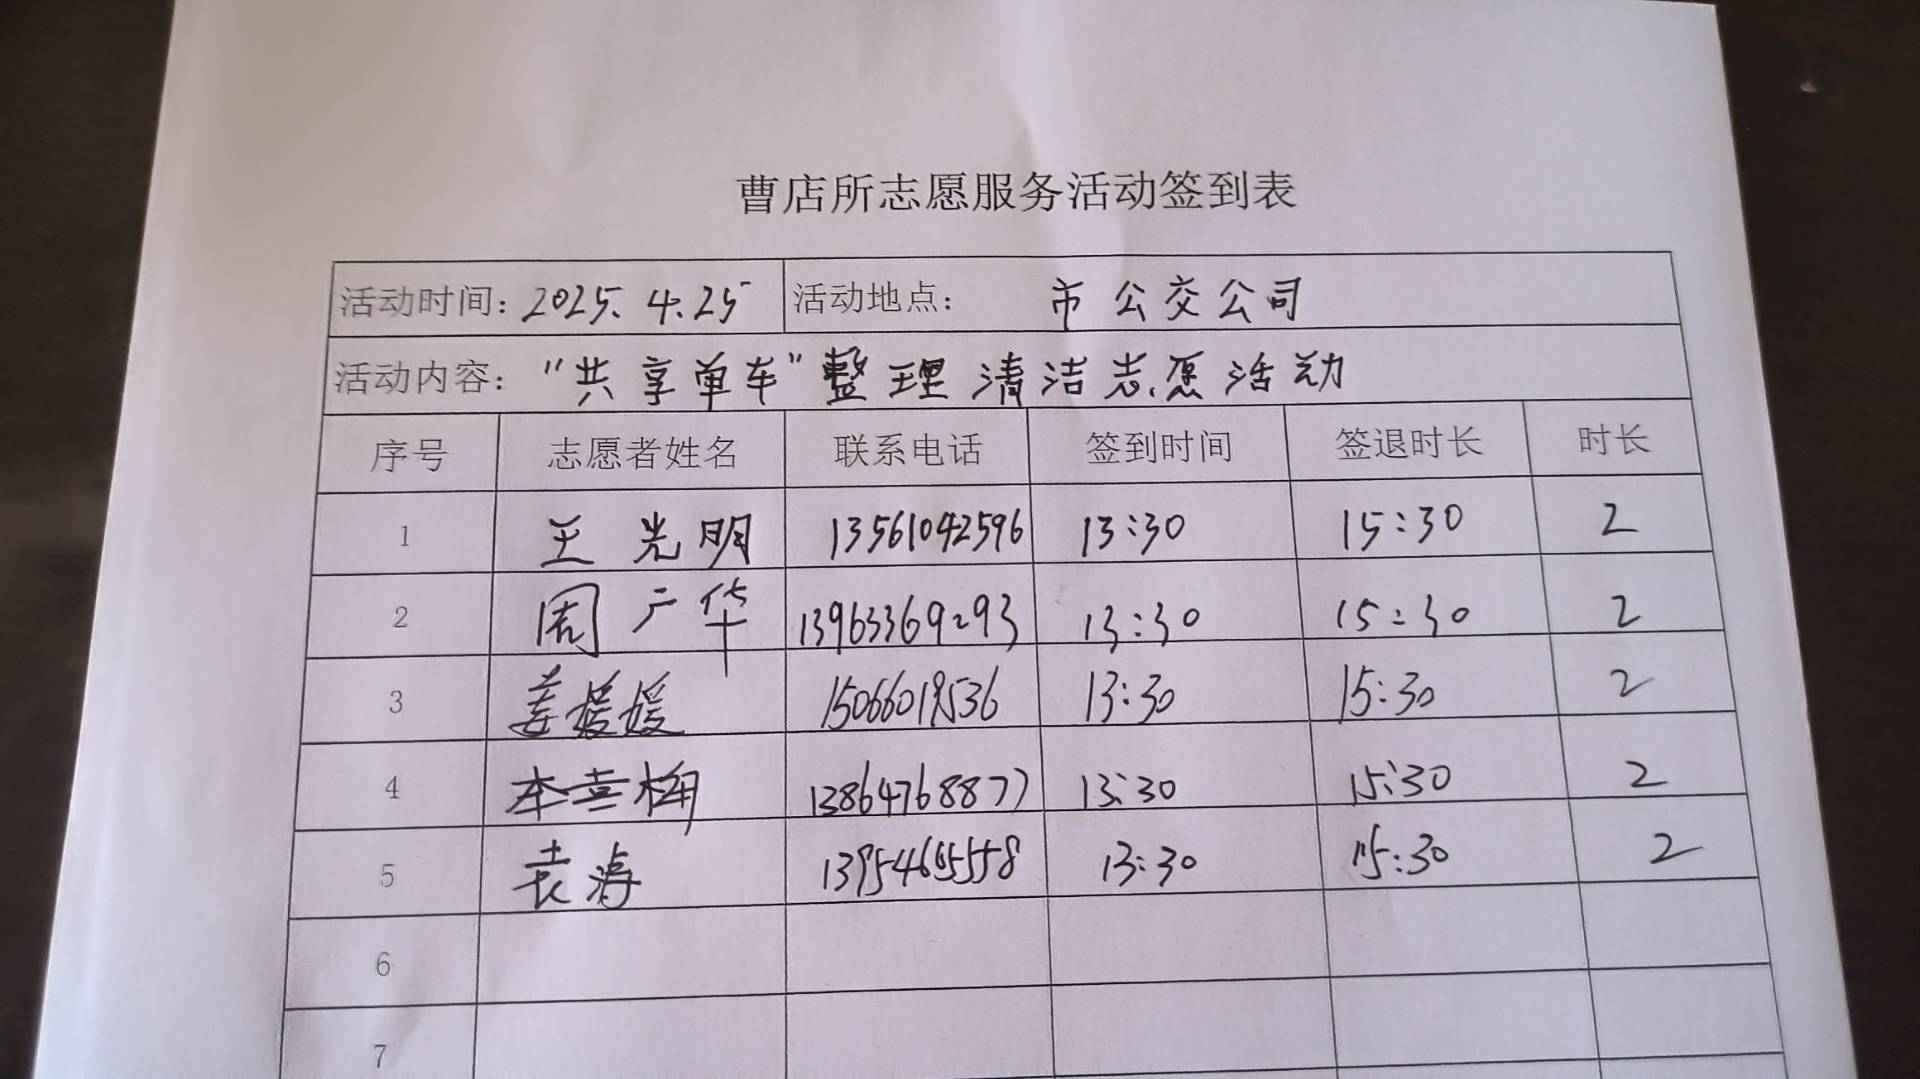 曹店所志愿服务活动签到表
活动时间: 2025. 4. 25 活动地点: 市公交公司
活动内容: "共享单车"整理清洁志愿活动
序号 志愿者姓名 联系电话 签到时间 签退时长 时长
1 王光明 13561042596 13:30 15:30 2
2 周广华 13963369293 13:30 15:30 2
3 姜媛媛 15066019536 13:30 15:30 2
4 本喜梅 13864768877 13:30 15:30 2
5 袁涛 13:30 15:30 2
6
7